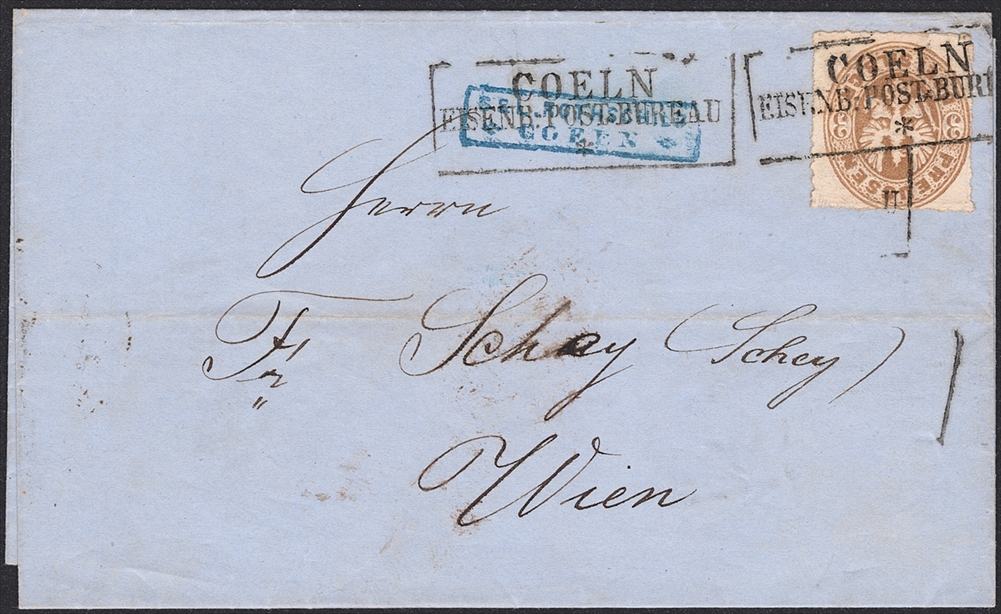 COELN
EISENB. POST-BUREAU
*
COELN
EISENB. POST-BUR
*
II
COELN
PREUSSEN
Herrn
Fr Schey (Schey)
Wien